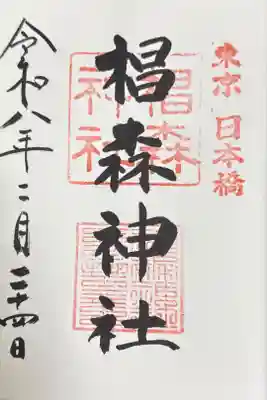 東京 日本橋
椙森神社
椙森神社
令和八年二月二十四日